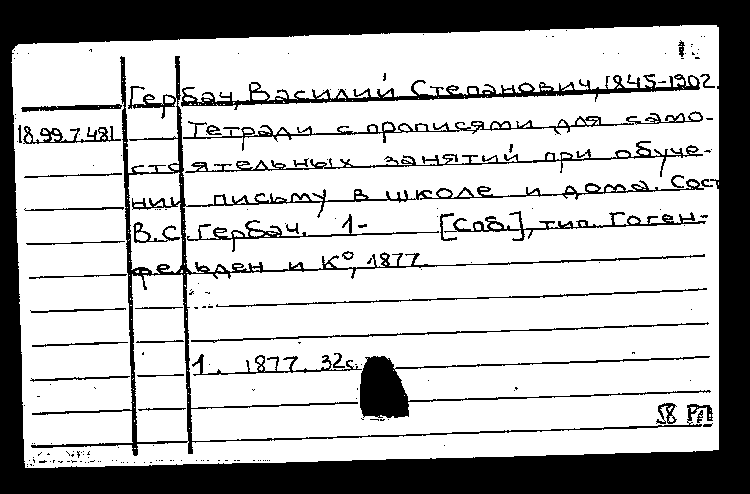 Гербач, Василий Степанович, 1845-1902.
18.99.7.481 Тетради с прописями для само-
стоятельных занятий при обуче-
нии письму в школе и дома. Сост
В.С. Гербач. 1- [Спб.], тип. Гоген-
фельден и К°, 1877.
1. 1877. 32с.